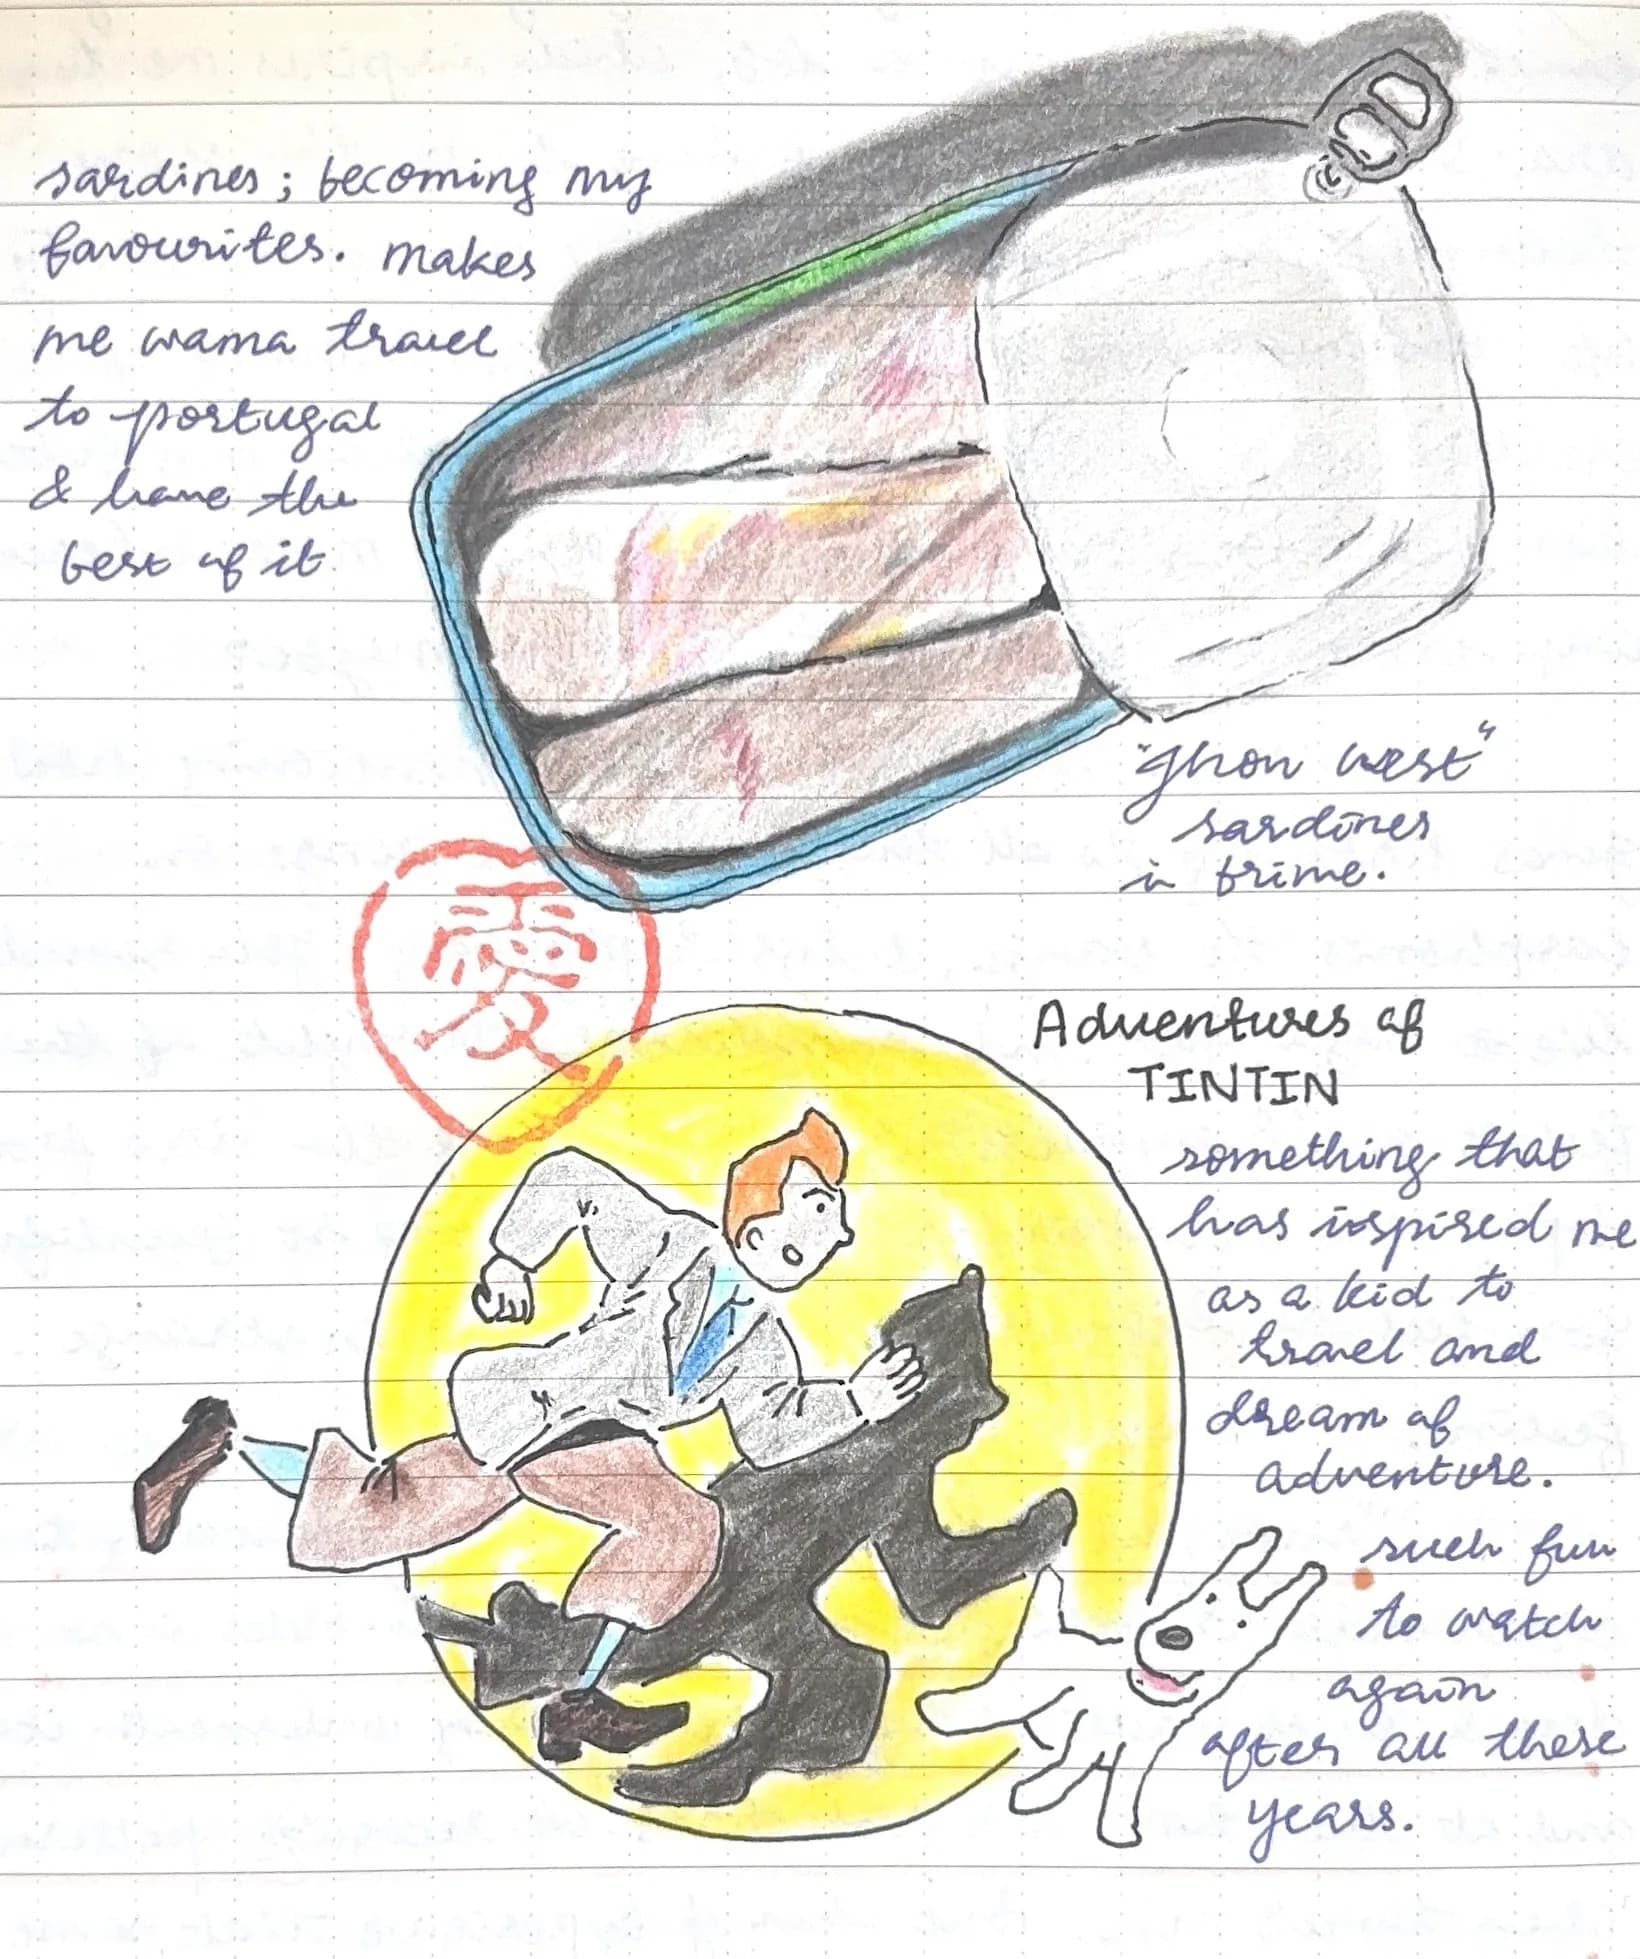 sardines; becoming my
favourites. makes
me wanna travel
to portugal
& have the
best of it
"ghon west"
sardines
in brine.
愛
Adventures of
TINTIN
something that
has inspired me
as a kid to
travel and
dream of
adventure.
such fun
to watch
again
after all these
years.